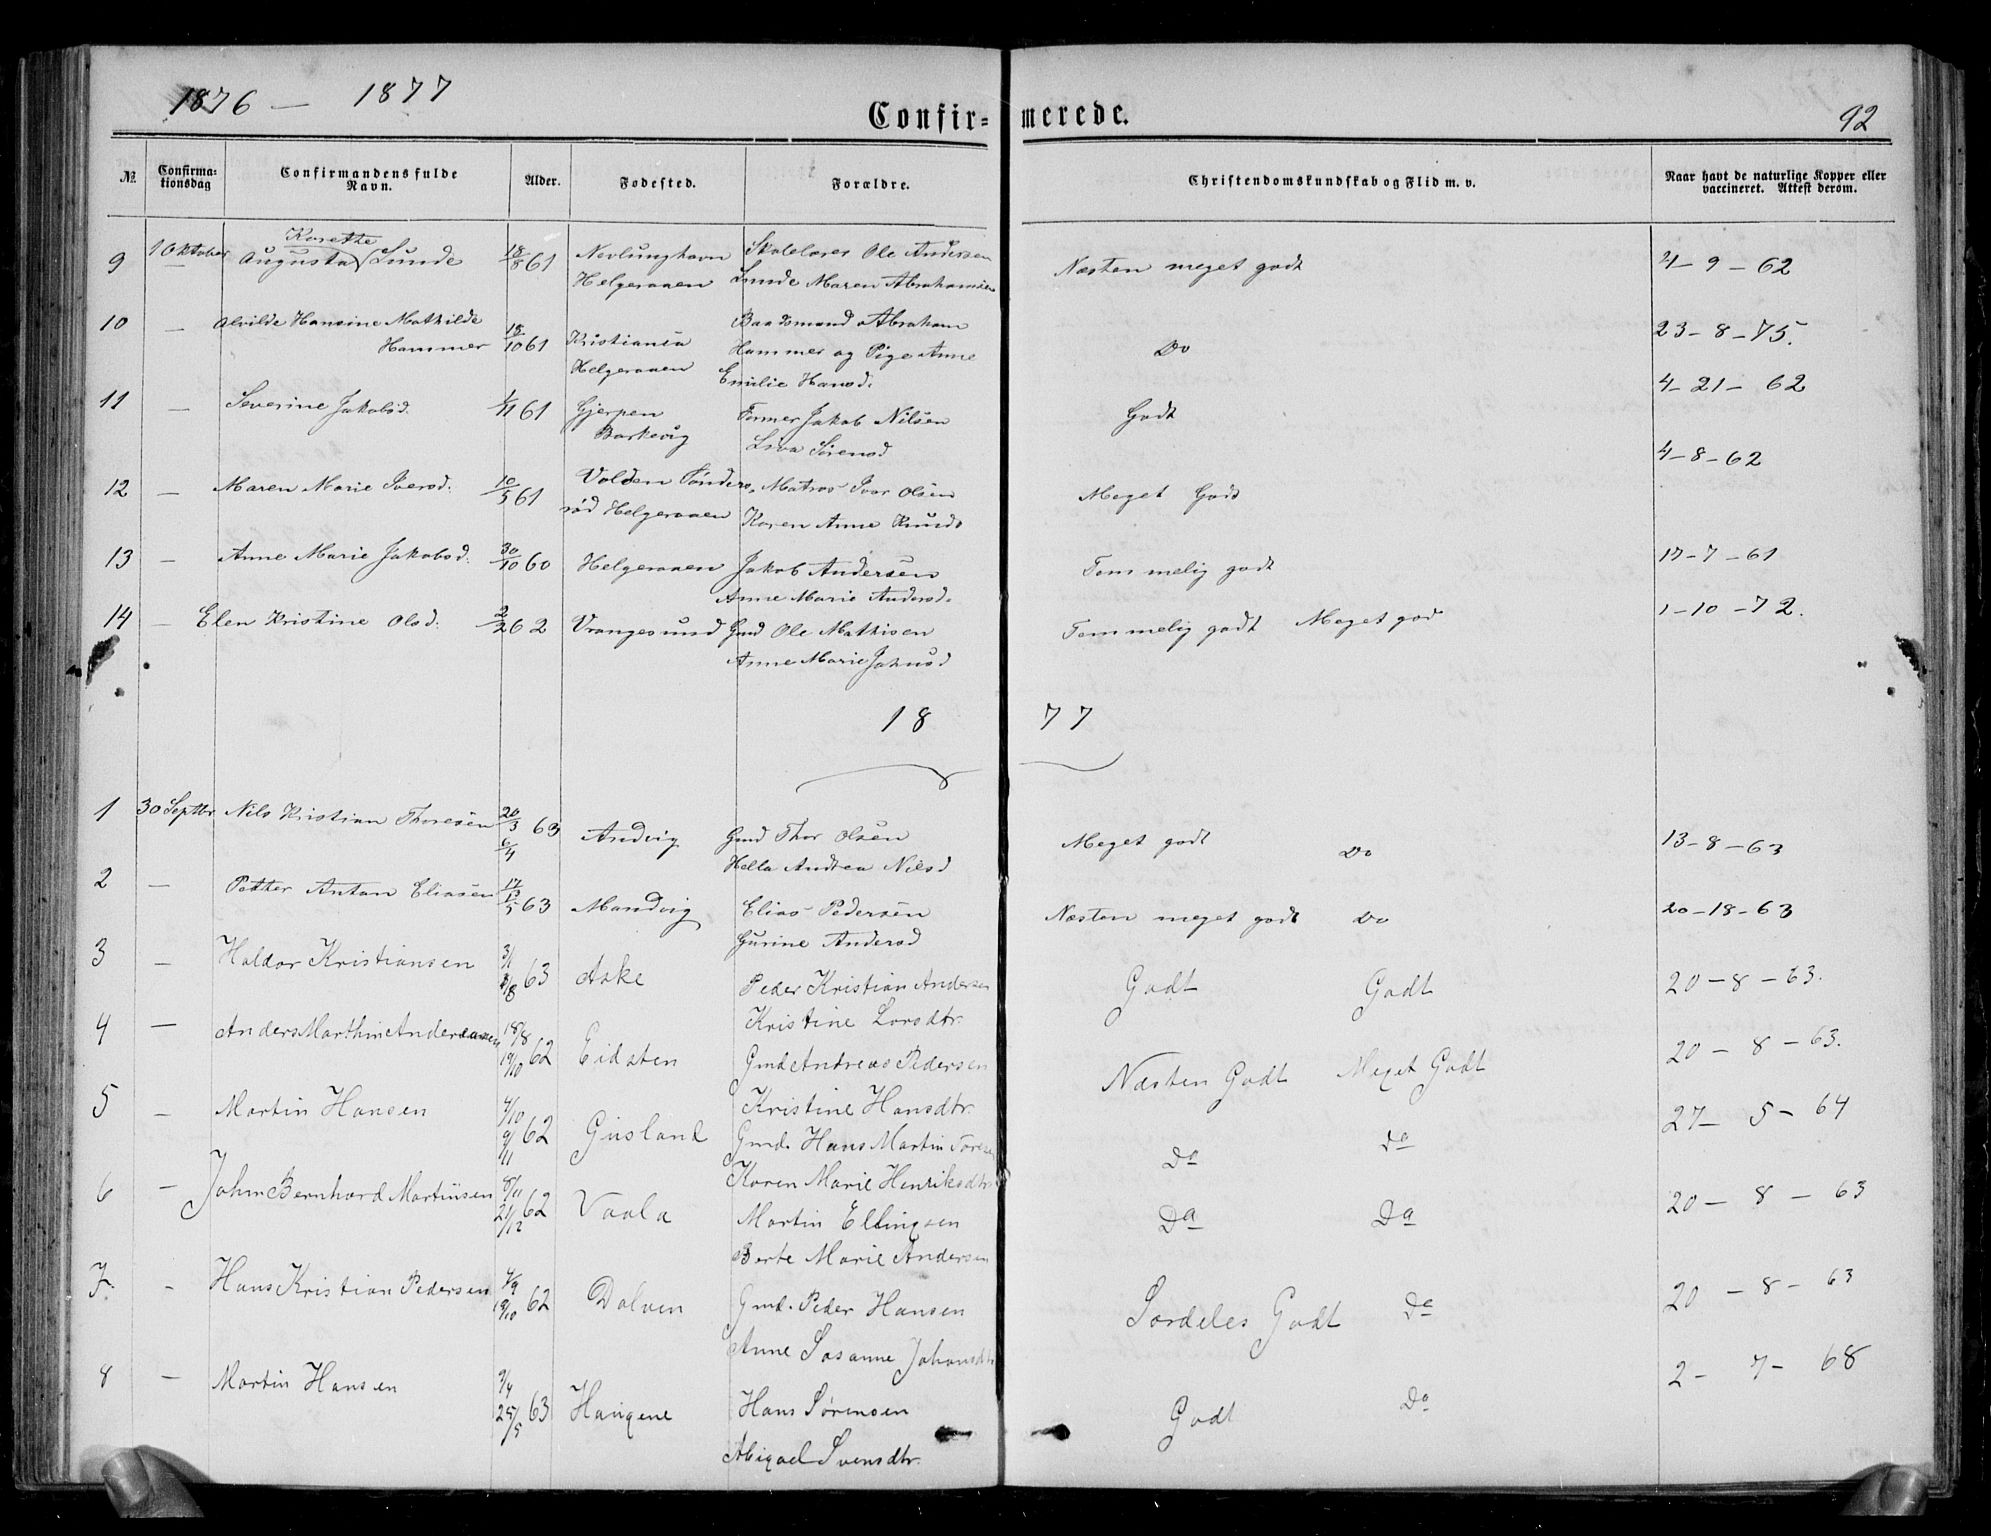 1876 — 1877
Confir= merede. 92
No. Confirma-tionsdag Confirmandens fulde Navn. Alder. Fodested. Forældre. Christendomskundskab og Flid m. v. Naar havt de naturlige Kopper eller vaccineret. Attest derom.
Karette
9 1 Oktober Augusta Lunde 18/8 61 Nevlunghavn Skolelærer Ole Andersen Næsten meget godt 4 - 9 - 62
Helgeraaen Lunde Maren Abrahamsen
10 — Alvilde Hansine Mathilde Baadsmand Abraham 23 - 8 - 75.
Hammer 18/10 61 Kristiania Hammer og Pige Anne Do
Helgeraaen Emilie Hansd.
11 — Severine Jakobsd. 1/11 61 Gjerpen Former Jakob Nilsen Godt 4 - 21 - 62
Barkevig Lisa Sørensd
12 — Maren Marie Iversd. 10/5 61 Volden Sønders Matros Ivar Olsen Meget Godt 4 - 8 - 62
rød Helgeraaen Karen Anne Knuds
13 — Anne Marie Jakobsd. 30/10 60 Helgeraaen Jakob Andersen Temmelig godt 17 - 7 - 61
Anne Marie Andersd.
14 — Elen Kristine Olsd. 2/2 62 Vrangesund Gmd Ole Mathisen Temmelig godt Meget god 1 - 10 - 72.
Anne Marie Johnsd
18 77
1 30 Septbr Nils Kristian Thoresen 20/3 63 6/4 Andvig Gmd Thor Olsen Meget godt Do 13 - 8 - 63
Hella Andrea Nilsd
2 — Petter Anton Eliasen 63 Mandvig Elias Pedersen Næsten meget godt Do 20 - 18 - 63
Gurine Andersd
3 — Haldor Kristiansen 3/1 63 Aske Peder Kristian Andersen Godt Godt 20 - 8 - 63.
Kristine Larsdtr.
4 — Anders Marthin Anderssen 18/8 19/10 62 Eidsten Gmd Andreas Pedersen Næsten Godt Meget Godt 20 - 8 - 63.
Kristine Hansdtr.
5 — Martin Hansen 4/10 9/11 62 Gusland Gmd. Hans Martin Do do 27 - 5 - 64
Karen Marie Henriksdtr
6 — Johan Bernhard Martinsen 8/11 21/12 62 Vaala Martin Ellingsen Do Do 20 - 8 - 63
Berte Marie Andersen
7. - Hans Kristian Pedersen 4/9 19/10 62 Dolven Gmd. Peder Hansen Særdeles Godt Do 20 - 8 - 63
Anne Sosanne Johansdtr
8 — Martin Hansen 9/4 25/5 63 Haugene Hans Sørensen Godt Do 2 - 7 - 68
Abigael Svensdtr.